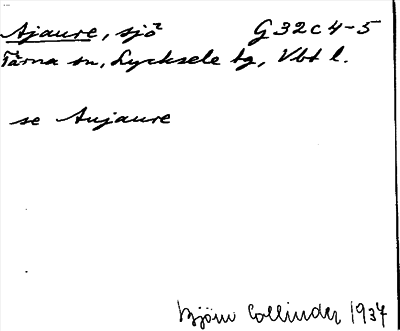 Ajaure, sjö² G 32 c 4-5
Tärna sn, Lycksele tg, Vbt l.
se Aujaure
Björn Collinder 1937